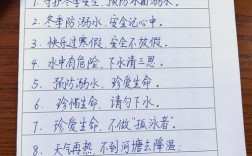 1. 守护冬季安全,预防冰面溺水。
2. 冬季防溺水,安全记心中。
3. 快乐过寒假,安全不放假。
4. 水中有危险,下水请三思。
5. 预防溺水,珍爱生命。
6. 珍惜生命,请勿下水。
7. 珍爱生命,不做"孤泳者"。
8. 天气再热,不到河塘去降温;